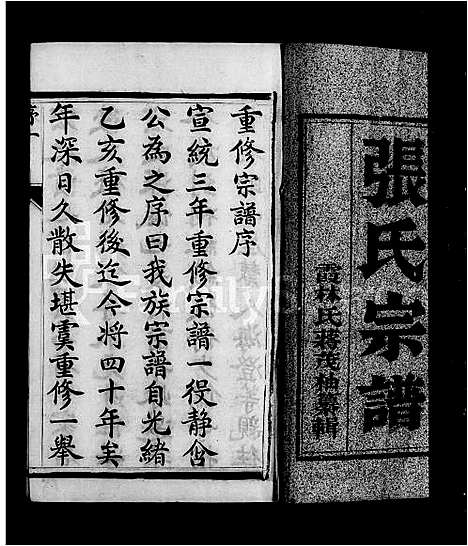 張氏宗譜
霞林氏蔣茂柏纂輯
重修宗譜序
宣統三年重修宗譜一役静盦
公為之序曰我族宗譜自光緒
乙亥重修後迄今將四十年矣
年深日久散失堪虞重修一舉